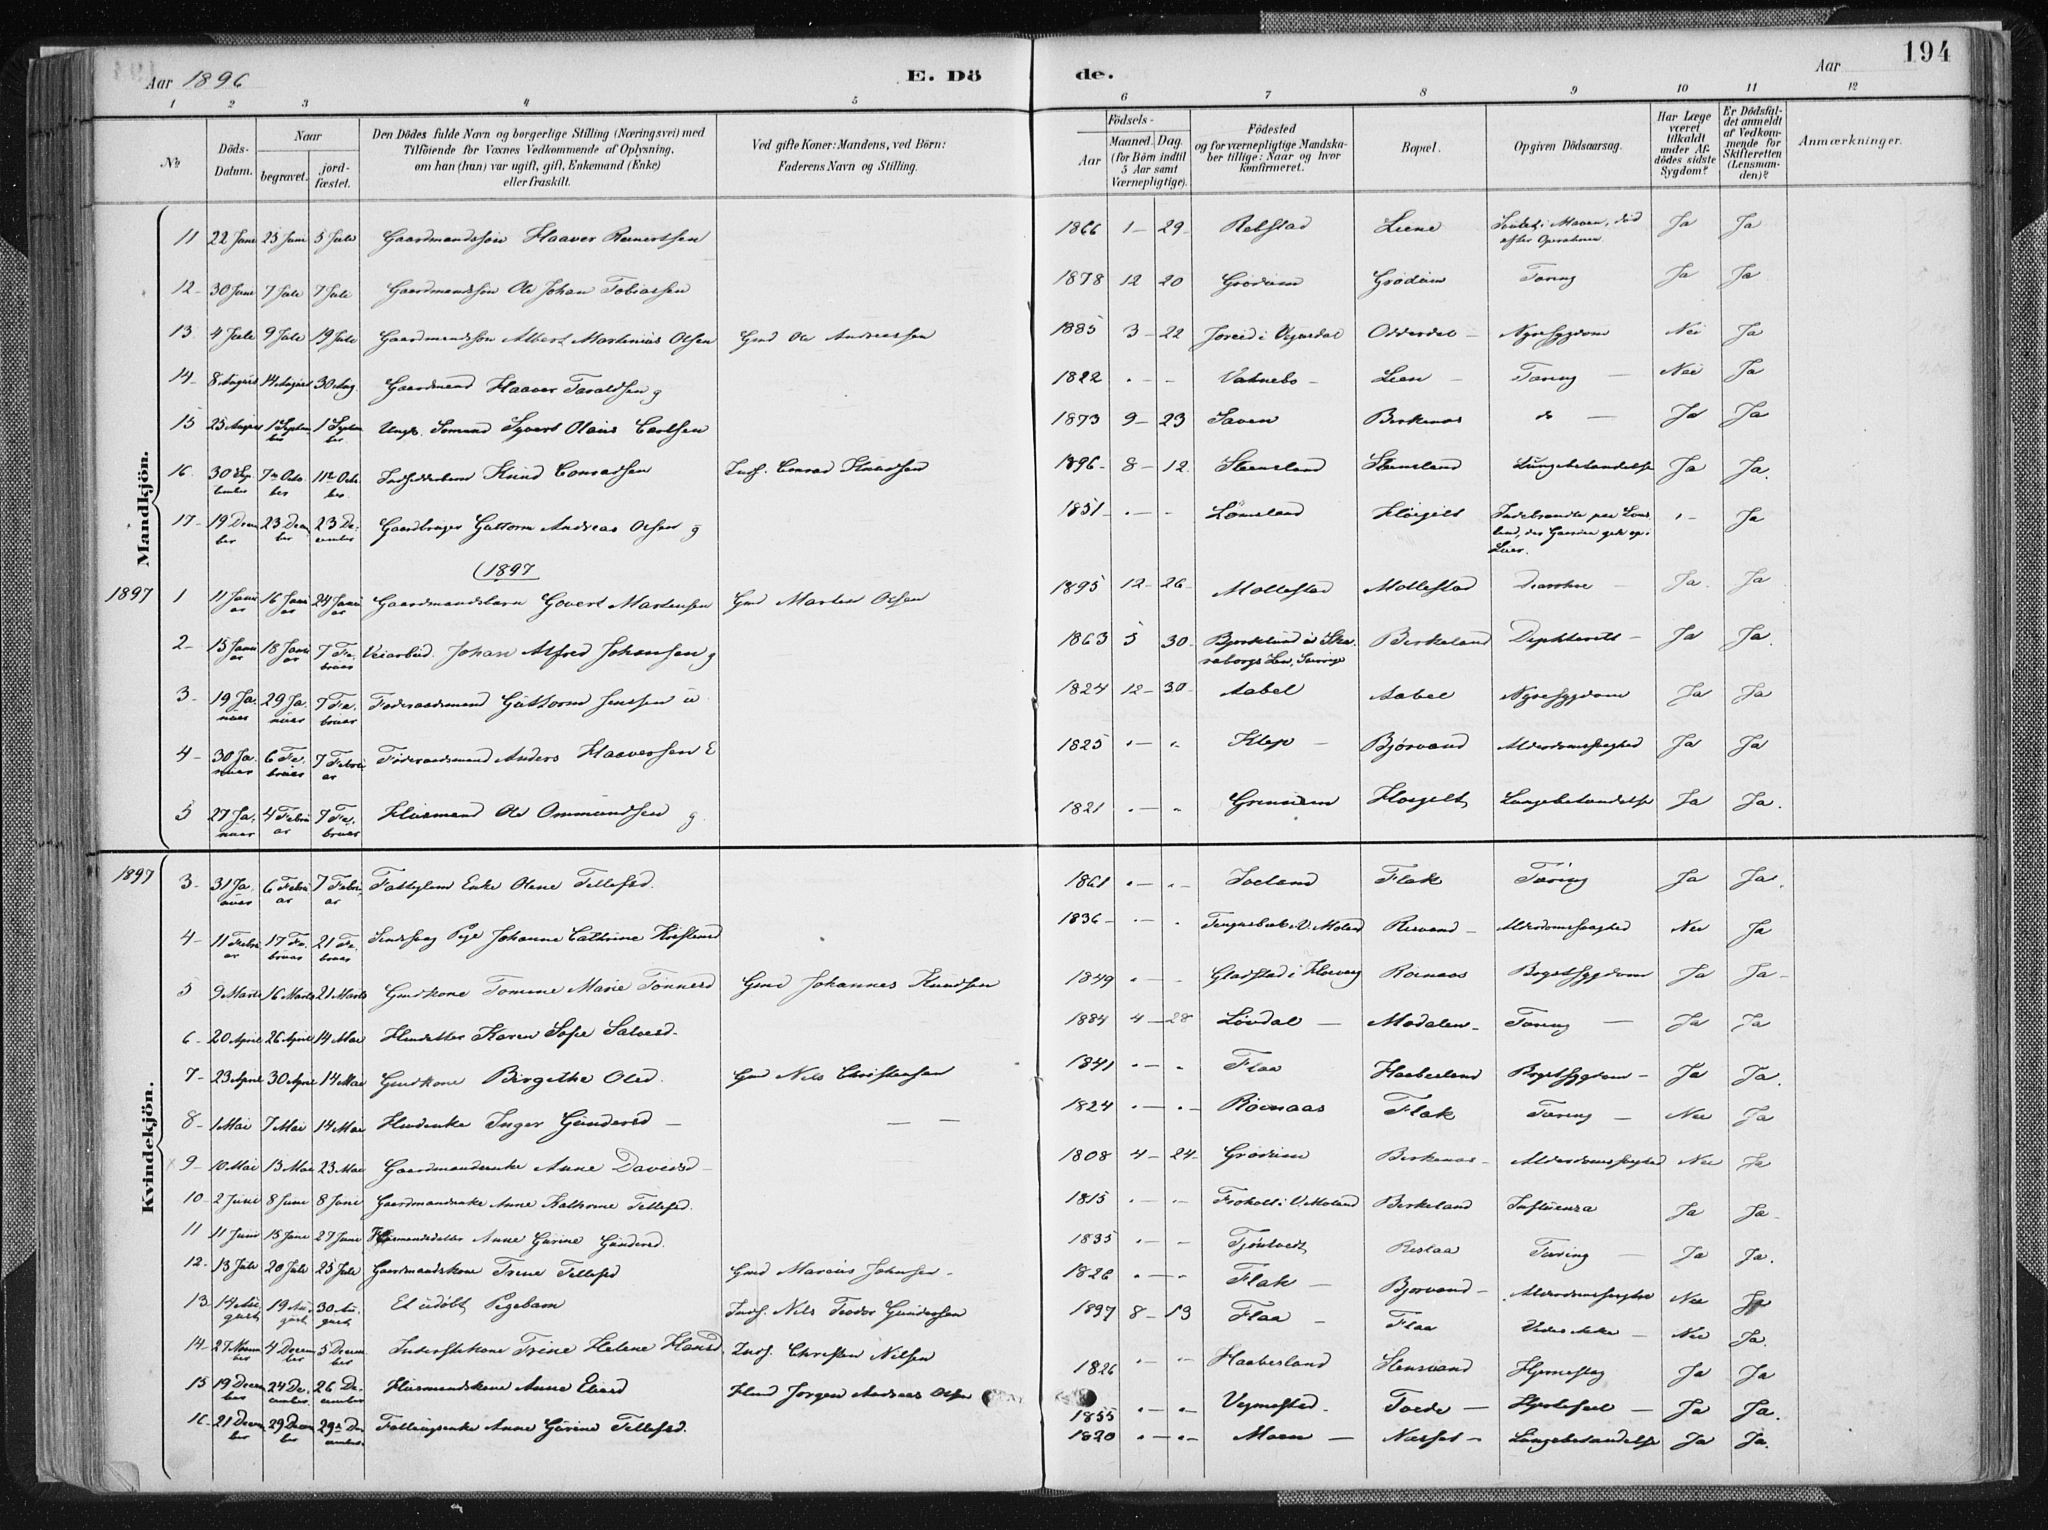 194
Aar 1896
E. Dö
de.
Aar
1 2 3 4 5 6 7 8 9 10 11 12
No
Döds-Datum.
Naar
begravet.
jord-fæstet.
Den Dödes fulde Navn og borgerlige Stilling (Næringsvei) med
Tilföiende for Voxnes Vedkommende af Oplysning,
om han (hun) var ugift, gift, Enkemand (Enke)
eller fraskilt.
Ved gifte Koner: Mandens, ved Börn:
Faderens Navn og Stilling.
Födsels-
Aar
Maaned. Dag.
(for Börn indtil
5 Aar samt
Værnepligtige).
Födested
og for værnepligtige Mandska-
ber tillige: Naar og hvor
konfirmeret.
Bopæl.
Opgiven Dödsaarsag.
Har Læge
været
tilkaldt
under Af-
dödes sidste
Sygdom?
Er Dödsfal-
det anmeldt
af Vedkom-
mende for
Skifteretten
(Lensman-
den)?
Anmærkninger.
Mandkjön.
11 22 Juni 25 Juni 5 Jule Gaardmandssøn Haaver Reinertsen 1866 1 29 Rebstad Liene død efter Operation Ja Ja
12 30 Juni 7 Jule 7 Jule Gaardmandssøn Ole Johan Tobiassen 1878 12 20 Grødum Grødum Tæring Ja Ja
13 4 Jule 9 Jule 19 Jule Gaardmandssøn Albert Martinius Olsen Gmd Ole Andreassen 1885 3 22 Vegusdal Odderdal Nyresygdom Nei Ja
14 8 August 14 August 30 Aug. Gaardmand Haaver Taraldsen g 1822 Vatnebo Lien Tæring Nei Ja
15 25 August 1 September 1 September Ungk. Sømand Syvert Olaus Carlsen 1873 9 23 Saven Birkenas do Ja Ja
16 30 September 7de October 11te October Knud Conradsen Inds. Conrad Knudsen 1896 8 12 Stensland Stensland Lungebetændelse Ja Ja.
17 19 December 23 December 23 December Gaardbruger Guttorm Andreas Olsen g 1851 Lømsland Høigilt Indebrændte paa Ja
1897
1897 1 11 Januar 16 Januar 24 Januar Gaardmandsbarn Govert Martensen Gmd Marten Olsen 1895 12 26 Mollestad Mollestad Diarrhoe Ja Ja
2 15 Januar 18 Januar 7 Februar Veiarbeid. Johan Alfred Johansen g 1863 5 30 Bjørkelund i Skaraborgs Len, Sverige Birkeland Diphterit Ja Ja.
3 19 Januar 29 Januar 7 Februar Føderaadsmand Guttorm Jenssen u 1824 12 30 Aabel Aabel Nyresygdom Ja Ja
4 30 Januar 6 Februar 7 Februar Føderaadsmand Anders Haaversen E 1825 Klep Bjørvand Alderdomssvaghed Ja Ja
5 27 Januar 4 Februar 7 Februar Husmand Ole Ommundsen g. 1821 Høigilt Lungebetændelse Ja Ja.
Kvindekjön.
1897 3 31 Januar 6 Februar 7 Februar Fattiglem Enke Olene Tellefsd. 1861 Flak Tæring Ja Ja.
4 11 Februar 17 Februar 21 Februar Pige Johanne Cathrine 1836 V. Moland Risvand Alderdomssvaghed Nei Ja
5 9 Marts 16 Marts 21 Marts Gmdkone Tomine Marie Tønnesd Gmd Johannes Knudsen 1849 Roinaas Brystsygdom Ja Ja
6 20 April 26 April 14 Mai Karen Sofie Salvesd. 1884 4 28 Løvdal Modalen Tæring Ja Ja
7 23 April 30 April 14 Mai Gmdkone Birgithe Olsd. Gmd Nils Christensen 1841 Flaa Haabesland Brystsygdom Ja Ja.
8 1 Mai 7 Mai 14 Mai Inger Gundersd 1824 Roinaas Flak Tæring Nei Ja
9 10 Mai 13 Mai 23 Mai Gaardmandsenke Anne Davidsd 1808 4 24 Grødum Birkenas Alderdomssvaghed Nei Ja
10 2 Juni 8 Juni 8 Juni Gaardmandsenke Anne Kathrine Tellefsd. 1815 V. Moland Birkeland Influenza Ja Ja
11 11 Juni 15 Juni 27 Juni Husmandsdatter Anne Gurine Gundersd. 1835 Tjøntvedt Tæring Ja Ja.
12 13 Jule 20 Jule 25 Jule Gaardmandskone Trine Tellefsd Gmd Marcus 1826 Flak Bjorvand Alderdomssvaghed Nei Ja
13 14 August 19 August 30 August Et udøbt Pigebarn Inds. Nils Teodor Gundersen 1897 8 13 Flaa Flaa Vides ikke Nei Ja.
14 27 November 4 December 5 December Trine Helene Hansd. Inds. Christen Nilsen 1826 Haabesland Stensvand Hjerneslag Ja Ja
15 19 December 24 December 26 December Husmandskone Anne Hmd Jørgen Andreas Olsen 1855 Tvede Hjertefeil Ja Ja.
16 21 December 29 December 29de December Anne Gurine Tellefsd. 1820 Moen Næsset Lungebetændelse Ja Ja.